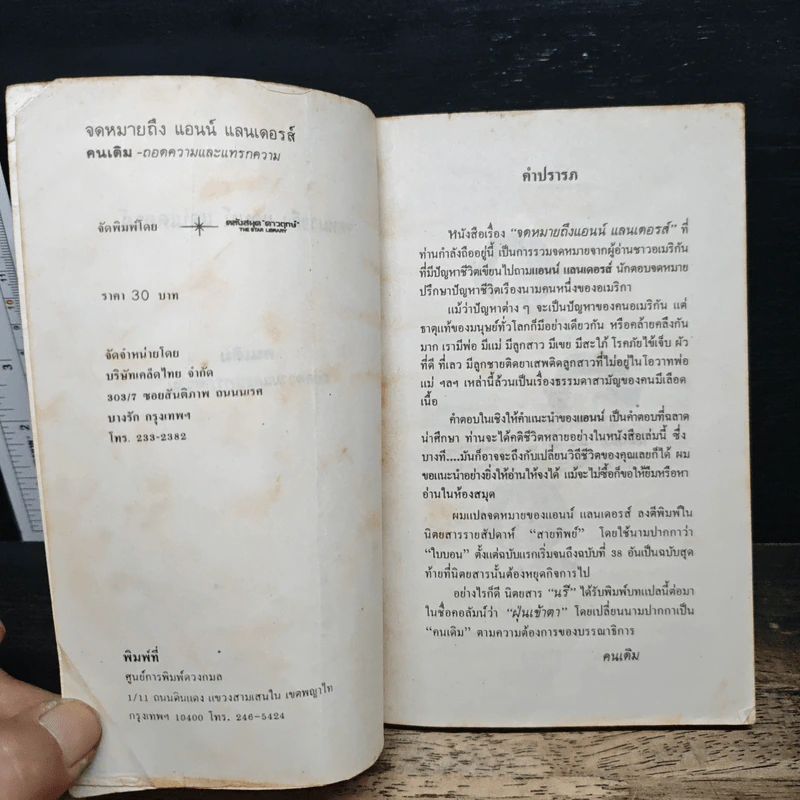 จดหมายถึง แอนน์ แลนเดอรส์
คนเดิม -ถอดความและแทรกความ
จัดพิมพ์โดย
คลังสมุด "ดาวฤกษ์"
THE STAR LIBRARY
ราคา 30 บาท
จัดจำหน่ายโดย
บริษัทเคล็ดไทย จำกัด
303/7 ซอยสันติภาพ ถนนนเรศ
บางรัก กรุงเทพฯ
โทร. 233-2382
พิมพ์ที่
ศูนย์การพิมพ์ดวงกมล
1/11 ถนนดินแดง แขวงสามเสนใน เขตพญาไท
กรุงเทพฯ 10400 โทร. 246-5424
คำปรารภ
หนังสือเรื่อง "จดหมายถึงแอนน์ แลนเดอรส์" ที่
ท่านกำลังถืออยู่นี้ เป็นการรวมจดหมายจากผู้อ่านชาวอเมริกัน
ที่มีปัญหาชีวิตเขียนไปถามแอนน์ แลนเดอรส์ นักตอบจดหมาย
ปรึกษาปัญหาชีวิตเรืองนามคนหนึ่งของอเมริกา
แม้ว่าปัญหาต่าง ๆ จะเป็นปัญหาของคนอเมริกัน แต่
ธาตุแท้ของมนุษย์ทั่วโลกก็มีอย่างเดียวกัน หรือคล้ายคลึงกัน
มาก เรามีพ่อ มีแม่ มีลูกสาว มีเขย มีสะใภ้ โรคภัยไข้เจ็บ ผัว
ที่ดี ที่เลว มีลูกชายติดยาเสพติดลูกสาวที่ไม่อยู่ในโอวาทพ่อ
แม่ ฯลฯ เหล่านี้ล้วนเป็นเรื่องธรรมดาสามัญของคนมีเลือด
เนื้อ
คำตอบในเชิงให้คำแนะนำของแอนน์ เป็นคำตอบที่ฉลาด
น่าศึกษา ท่านจะได้คติชีวิตหลายอย่างในหนังสือเล่มนี้ ซึ่ง
บางที....มันก็อาจจะถึงกับเปลี่ยนวิถีชีวิตของคุณเลยก็ได้ ผม
ขอแนะนำอย่างยิ่งให้อ่านให้จงได้ แม้จะไม่ซื้อก็ขอให้ยืมหรือหา
อ่านในห้องสมุด
ผมแปลจดหมายของแอนน์ แลนเดอรส์ ลงตีพิมพ์ใน
นิตยสารรายสัปดาห์ "สายทิพย์" โดยใช้นามปากกาว่า
"ใบบอน" ตั้งแต่ฉบับแรกเริ่มจนถึงฉบับที่ 38 อันเป็นฉบับสุด
ท้ายที่นิตยสารนั้นต้องหยุดกิจการไป
อย่างไรก็ดี นิตยสาร "นรี" ได้รับพิมพ์บทแปลนี้ต่อมา
ในชื่อคอลัมน์ว่า "ฝุ่นเข้าตา" โดยเปลี่ยนนามปากกาเป็น
"คนเดิม" ตามความต้องการของบรรณาธิการ
คนเดิม